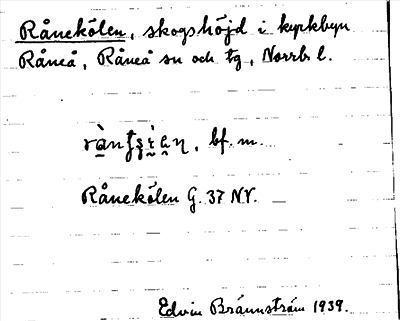 Rånekölen, skogshöjd i kyrkbyn
Råneå, Råneå sn och tg, Norrb. l.
bf. m.
Rånekölen G. 37 NV.
Edvin Brännström 1939.